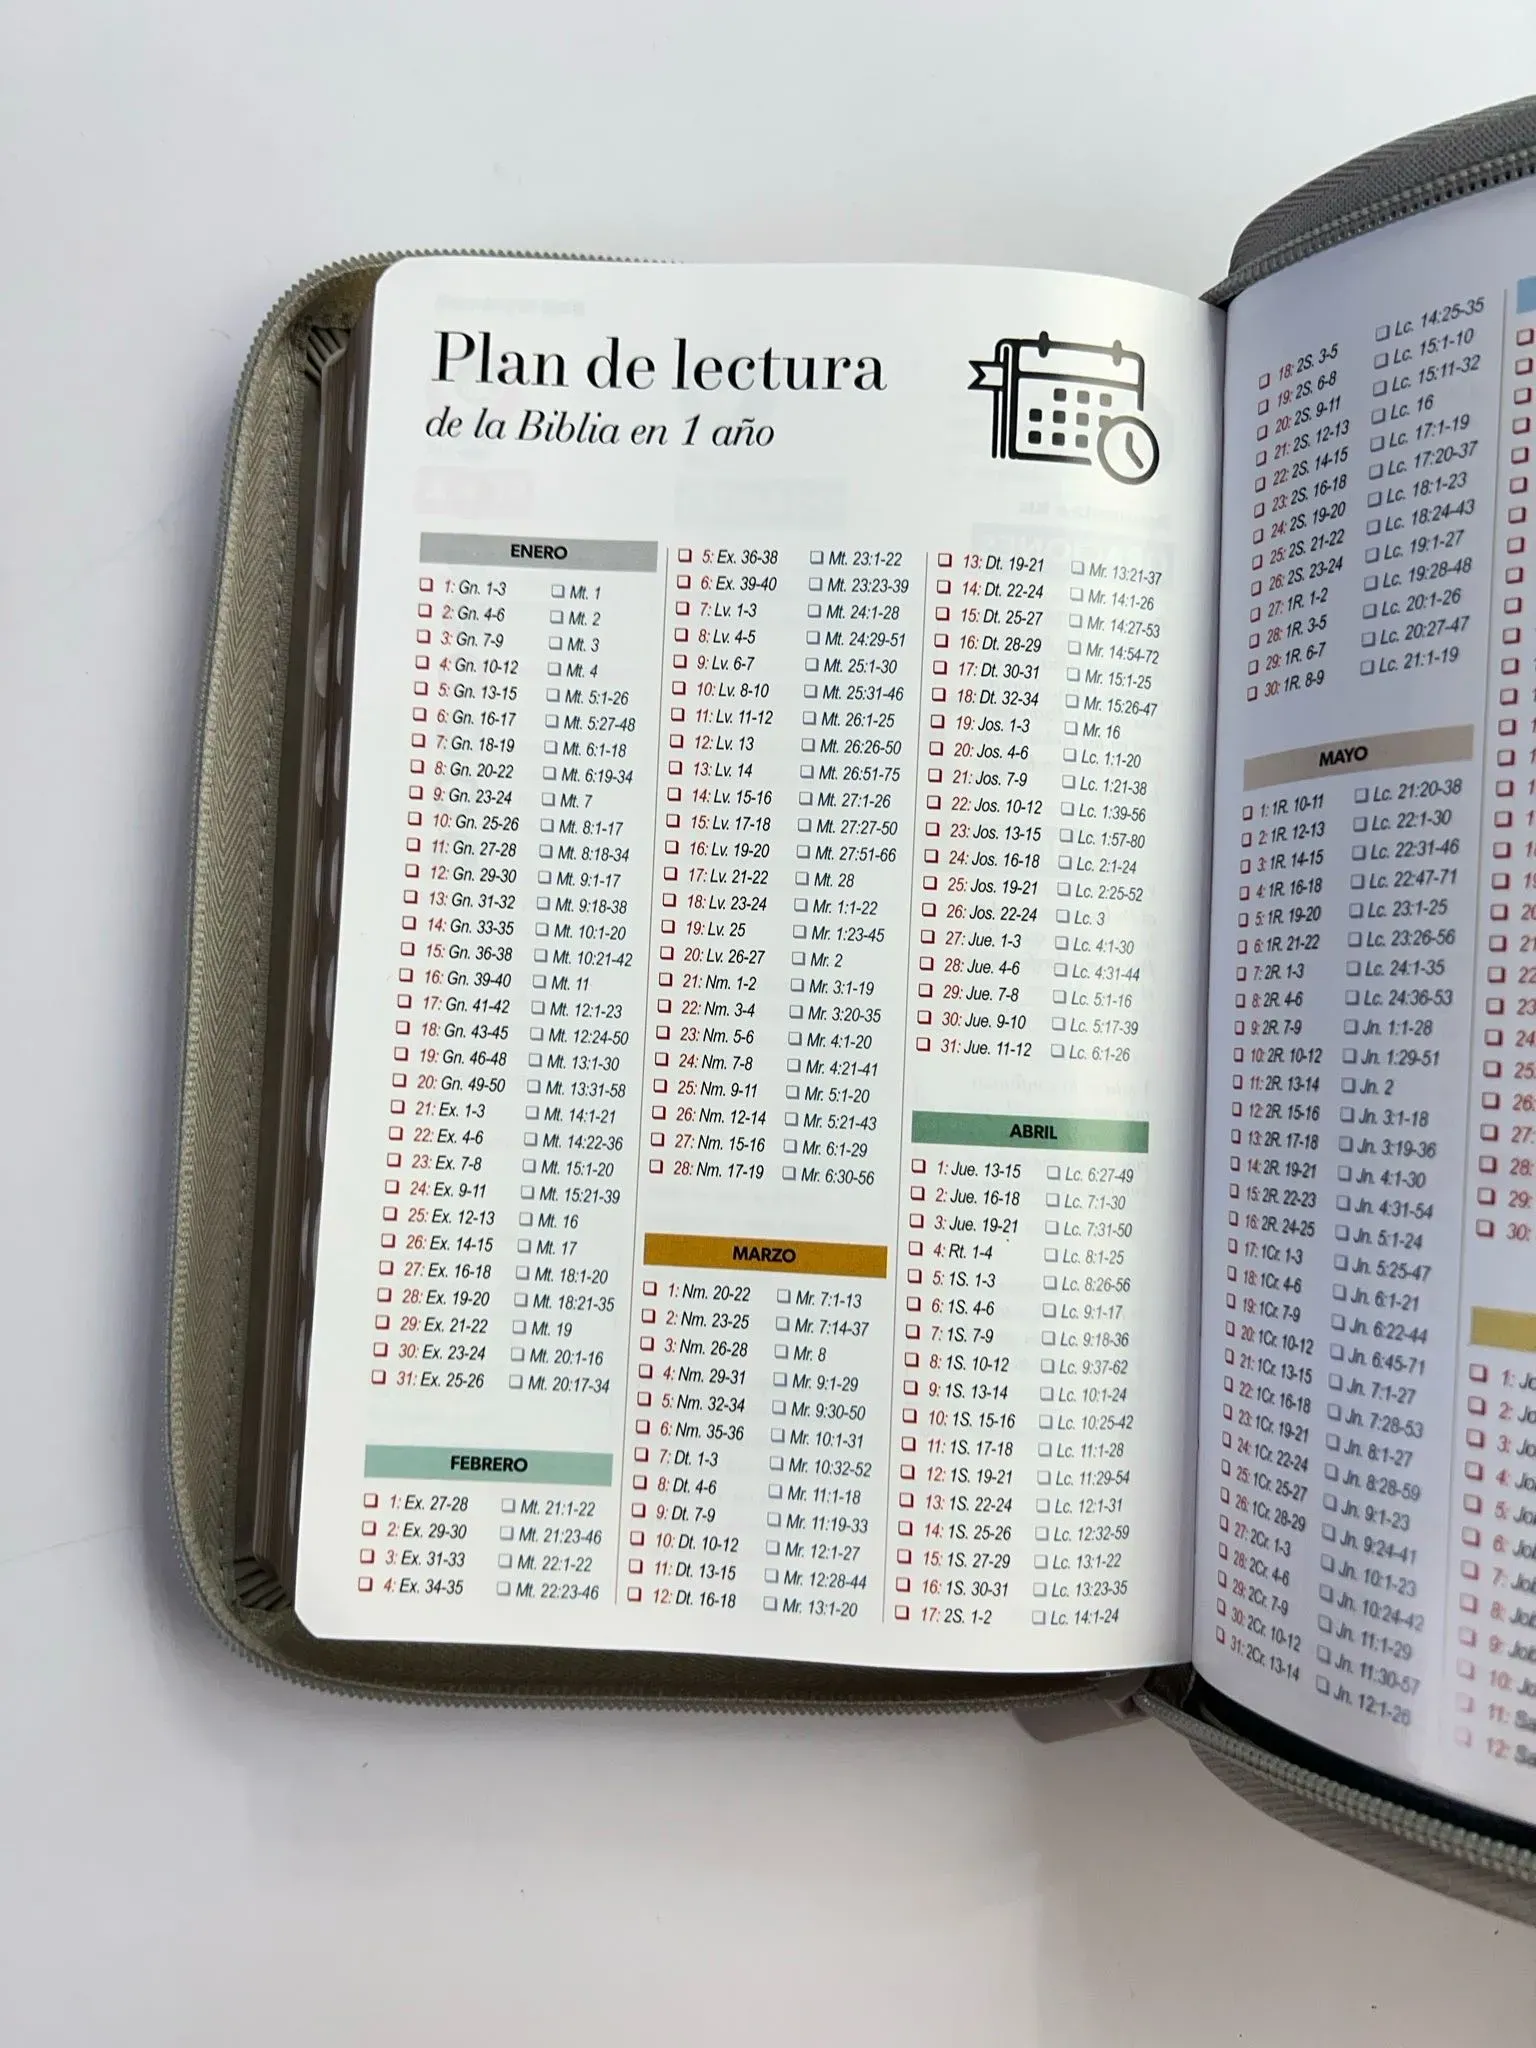 Plan de lectura
de la Biblia en 1 año
ENERO
1: Gn. 1-3 Mt. 1
2: Gn. 4-6 Mt. 2
3: Gn. 7-9 Mt. 3
4: Gn. 10-12 Mt. 4
5: Gn. 13-15 Mt. 5:1-26
6: Gn. 16-17 Mt. 5:27-48
7: Gn. 18-19 Mt. 6:1-18
8: Gn. 20-22 Mt. 6:19-34
9: Gn. 23-24 Mt. 7
10: Gn. 25-26 Mt. 8:1-17
11: Gn. 27-28 Mt. 8:18-34
12: Gn. 29-30 Mt. 9:1-17
13: Gn. 31-32 Mt. 9:18-38
14: Gn. 33-35 Mt. 10:1-20
15: Gn. 36-38 Mt. 10:21-42
16: Gn. 39-40 Mt. 11
17: Gn. 41-42 Mt. 12:1-23
18: Gn. 43-45 Mt. 12:24-50
19: Gn. 46-48 Mt. 13:1-30
20: Gn. 49-50 Mt. 13:31-58
21: Ex. 1-3 Mt. 14:1-21
22: Ex. 4-6 Mt. 14:22-36
23: Ex. 7-8 Mt. 15:1-20
24: Ex. 9-11 Mt. 15:21-39
25: Ex. 12-13 Mt. 16
26: Ex. 14-15 Mt. 17
27: Ex. 16-18 Mt. 18:1-20
28: Ex. 19-20 Mt. 18:21-35
29: Ex. 21-22 Mt. 19
30: Ex. 23-24 Mt. 20:1-16
31: Ex. 25-26 Mt. 20:17-34
FEBRERO
1: Ex. 27-28 Mt. 21:1-22
2: Ex. 29-30 Mt. 21:23-46
3: Ex. 31-33 Mt. 22:1-22
4: Ex. 34-35 Mt. 22:23-46
5: Ex. 36-38 Mt. 23:1-22
6: Ex. 39-40 Mt. 23:23-39
7: Lv. 1-3 Mt. 24:1-28
8: Lv. 4-5 Mt. 24:29-51
9: Lv. 6-7 Mt. 25:1-30
10: Lv. 8-10 Mt. 25:31-46
11: Lv. 11-12 Mt. 26:1-25
12: Lv. 13 Mt. 26:26-50
13: Lv. 14 Mt. 26:51-75
14: Lv. 15-16 Mt. 27:1-26
15: Lv. 17-18 Mt. 27:27-50
16: Lv. 19-20 Mt. 27:51-66
17: Lv. 21-22 Mt. 28
18: Lv. 23-24 Mr. 1:1-22
19: Lv. 25 Mr. 1:23-45
20: Lv. 26-27 Mr. 2
21: Nm. 1-2 Mr. 3:1-19
22: Nm. 3-4 Mr. 3:20-35
23: Nm. 5-6 Mr. 4:1-20
24: Nm. 7-8 Mr. 4:21-41
25: Nm. 9-11 Mr. 5:1-20
26: Nm. 12-14 Mr. 5:21-43
27: Nm. 15-16 Mr. 6:1-29
28: Nm. 17-19 Mr. 6:30-56
MARZO
1: Nm. 20-22 Mr. 7:1-13
2: Nm. 23-25 Mr. 7:14-37
3: Nm. 26-28 Mr. 8
4: Nm. 29-31 Mr. 9:1-29
5: Nm. 32-34 Mr. 9:30-50
6: Nm. 35-36 Mr. 10:1-31
7: Dt. 1-3 Mr. 10:32-52
8: Dt. 4-6 Mr. 11:1-18
9: Dt. 7-9 Mr. 11:19-33
10: Dt. 10-12 Mr. 12:1-27
11: Dt. 13-15 Mr. 12:28-44
12: Dt. 16-18 Mr. 13:1-20
13: Dt. 19-21 Mr. 13:21-37
14: Dt. 22-24 Mr. 14:1-26
15: Dt. 25-27 Mr. 14:27-53
16: Dt. 28-29 Mr. 14:54-72
17: Dt. 30-31 Mr. 15:1-25
18: Dt. 32-34 Mr. 15:26-47
19: Jos. 1-3 Mr. 16
20: Jos. 4-6 Lc. 1:1-20
21: Jos. 7-9 Lc. 1:21-38
22: Jos. 10-12 Lc. 1:39-56
23: Jos. 13-15 Lc. 1:57-80
24: Jos. 16-18 Lc. 2:1-24
25: Jos. 19-21 Lc. 2:25-52
26: Jos. 22-24 Lc. 3
27: Jue. 1-3 Lc. 4:1-30
28: Jue. 4-6 Lc. 4:31-44
29: Jue. 7-8 Lc. 5:1-16
30: Jue. 9-10 Lc. 5:17-39
31: Jue. 11-12 Lc. 6:1-26
ABRIL
1: Jue. 13-15 Lc. 6:27-49
2: Jue. 16-18 Lc. 7:1-30
3: Jue. 19-21 Lc. 7:31-50
4: Rt. 1-4 Lc. 8:1-25
5: 1S. 1-3 Lc. 8:26-56
6: 1S. 4-6 Lc. 9:1-17
7: 1S. 7-9 Lc. 9:18-36
8: 1S. 10-12 Lc. 9:37-62
9: 1S. 13-14 Lc. 10:1-24
10: 1S. 15-16 Lc. 10:25-42
11: 1S. 17-18 Lc. 11:1-28
12: 1S. 19-21 Lc. 11:29-54
13: 1S. 22-24 Lc. 12:1-31
14: 1S. 25-26 Lc. 12:32-59
15: 1S. 27-29 Lc. 13:1-22
16: 1S. 30-31 Lc. 13:23-35
17: 2S. 1-2 Lc. 14:1-24
18: 2S. 3-5 Lc. 14:25-35
19: 2S. 6-8 Lc. 15:1-10
20: 2S. 9-11 Lc. 15:11-32
21: 2S. 12-13 Lc. 16
22: 2S. 14-15 Lc. 17:1-19
23: 2S. 16-18 Lc. 17:20-37
24: 2S. 19-20 Lc. 18:1-23
25: 2S. 21-22 Lc. 18:24-43
26: 2S. 23-24 Lc. 19:1-27
27: 1R. 1-2 Lc. 19:28-48
28: 1R. 3-5 Lc. 20:1-26
29: 1R. 6-7 Lc. 20:27-47
30: 1R. 8-9 Lc. 21:1-19
MAYO
1: 1R. 10-11 Lc. 21:20-38
2: 1R. 12-13 Lc. 22:1-30
3: 1R. 14-15 Lc. 22:31-46
4: 1R. 16-18 Lc. 22:47-71
5: 1R. 19-20 Lc. 23:1-25
6: 1R. 21-22 Lc. 23:26-56
7: 2R. 1-3 Lc. 24:1-35
8: 2R. 4-6 Lc. 24:36-53
9: 2R. 7-9 Jn. 1:1-28
10: 2R. 10-12 Jn. 1:29-51
11: 2R. 13-14 Jn. 2
12: 2R. 15-16 Jn. 3:1-18
13: 2R. 17-18 Jn. 3:19-36
14: 2R. 19-21 Jn. 4:1-30
15: 2R. 22-23 Jn. 4:31-54
16: 2R. 24-25 Jn. 5:1-24
17: 1Cr. 1-3 Jn. 5:25-47
18: 1Cr. 4-6 Jn. 6:1-21
19: 1Cr. 7-9 Jn. 6:22-44
20: 1Cr. 10-12 Jn. 6:45-71
21: 1Cr. 13-15 Jn. 7:1-27
22: 1Cr. 16-18 Jn. 7:28-53
23: 1Cr. 19-21 Jn. 8:1-27
24: 1Cr. 22-24 Jn. 8:28-59
25: 1Cr. 25-27 Jn. 9:1-23
26: 1Cr. 28-29 Jn. 9:24-41
27: 2Cr. 1-3 Jn. 10:1-23
28: 2Cr. 4-6 Jn. 10:24-42
29: 2Cr. 7-9 Jn. 11:1-29
30: 2Cr. 10-12 Jn. 11:30-57
31: 2Cr. 13-14 Jn. 12:1-26
22
23
24
25
26:
27:
28:
29:
30:
1:
2:
3:
4:
5:
6:
7:
8:
9:
10:
11:
12: